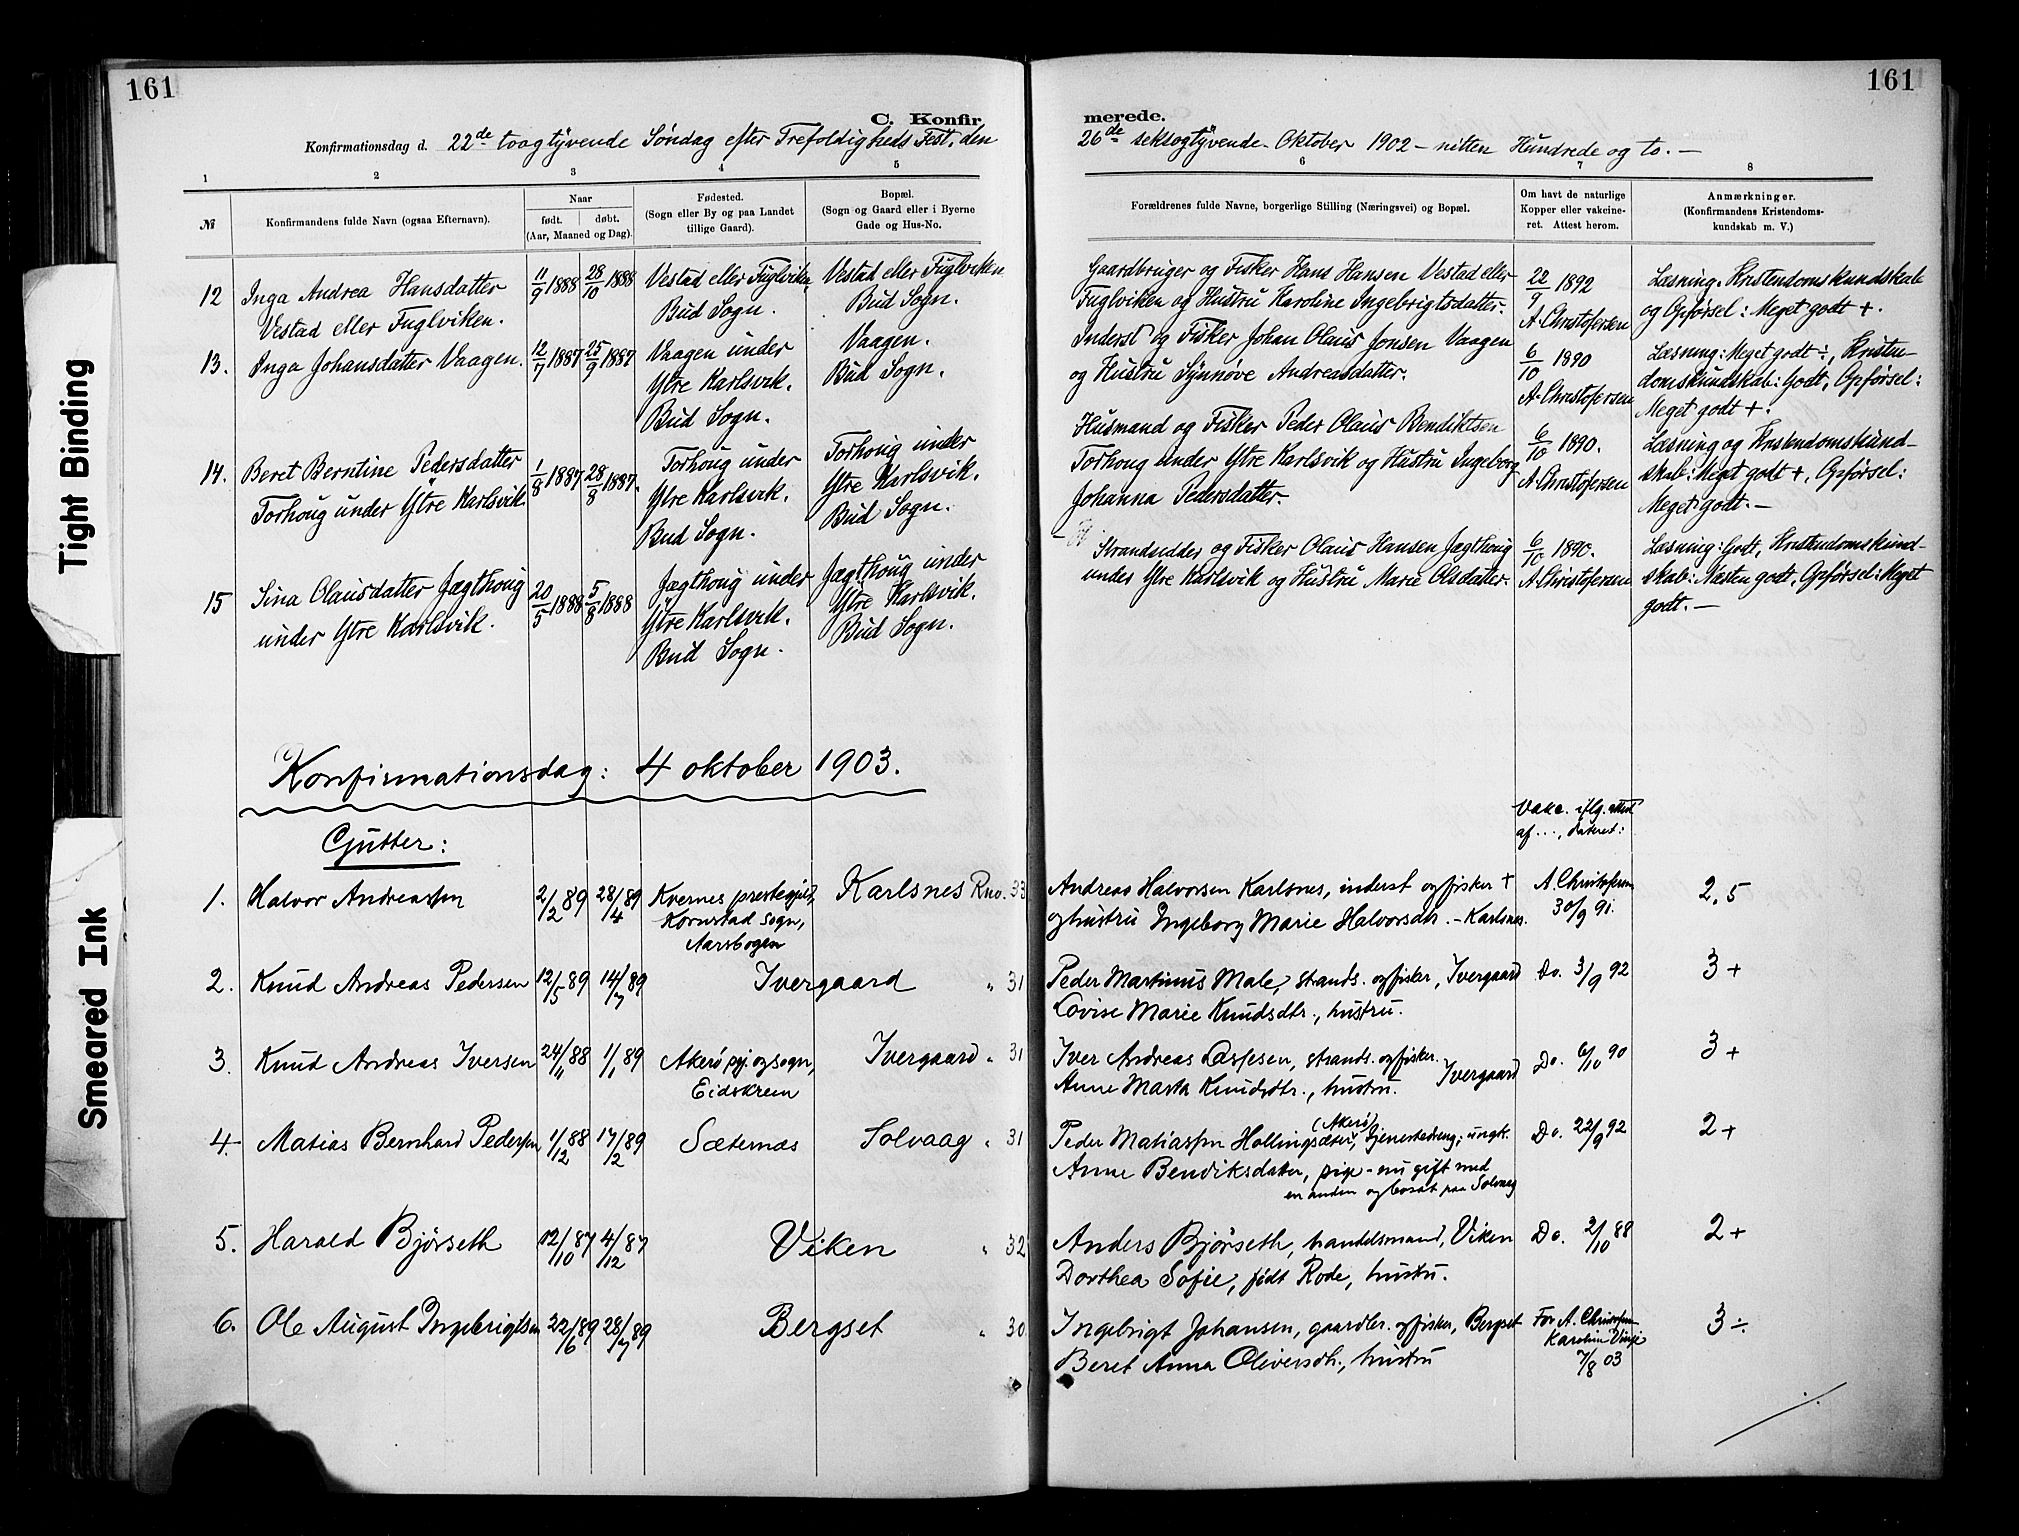 161
161
C. Konfir
merede.
Konfirmationsdag d. 22de toogtyvende Søndag efter Trefoldigheds Fest, den
26de seksogtyvende Oktober 1902 – nitten Hundrede og to. –
1 2 3 4 5
6 7 8
№
Konfirmandens fulde Navn (ogsaa Efternavn).
Naar
født. døbt.
(Aar, Maaned og Dag).
Fødested.
(Sogn eller By og paa Landet
tillige Gaard).
Bopæl.
(Sogn og Gaard eller i Byerne
Gade og Hus-No.
Forældrenes fulde Navne, borgerlige Stilling (Næringsvei) og Bopæl.
Om havt de naturlige
Kopper eller vakcine-
ret. Attest herom.
Anmærkninger.
(Konfirmandens Kristendoms-
kundskab m. V.)
12 Inga Andrea Hansdatter
Vestad eller Fuglviken.
11/9 1888 28/10 1888
Vestad eller Fuglviken,
Bud Sogn.
Vestad eller Fuglviken
Bud Sogn.
Gaardbruger og Fisker Hans Hansen Vestad eller
Fuglviken og Hustru Karoline Ingebrigtsdatter.
22/9 1892
A. Christofersen
Læsning, Kristendomskundskab
og Opførsel: Meget godt +.
13. Inga Johansdatter Vaagen.
12/7 1887 25/9 1887
Vaagen under
Ytre Karlsvik.
Bud Sogn.
Vaagen.
Bud Sogn.
Inderst og Fisker Johan Olaus Jonsen Vaagen
og Hustru Synnøve Andreasdatter.
6/10 1890
A. Christofersen
Læsning: Meget godt ÷, Kristen-
domskundskab: Godt, Opførsel:
Meget godt +.
14. Beret Berntine Pedersdatter
Torhoug under Ytre Karlsvik.
1/8 1887 28/8 1887.
Torhoug under
Ytre Karlsvik.
Bud Sogn.
Torhoug under
Ytre Karlsvik.
Bud Sogn.
Husmand og Fisker Peder Olaus Bendiktsen
Torhoug under Ytre Karlsvik og Hustru Ingeborg
Johanna Pedersdatter.
6/10 1890.
A. Christofersen
Læsning og Kristendomskund-
skab: Meget godt +, Opførsel:
Meget godt. –
15 Sina Olausdatter Jægthoug
under Ytre Karlsvik.
20/5 1888 5/8 1888
Jægthoug under
Ytre Karlsvik.
Bud Sogn.
Jægthoug under
Ytre Karlsvik.
Bud Sogn.
Strandsidder og Fisker Olaus Hansen Jægthoug
under Ytre Karlsvik og Hustru Marie Olsdatter.
6/10 1890.
A. Christofersen
Læsning: Godt, Kristendomskund-
skab: Næsten godt, Opførsel: Meget
godt. –
Konfirmationsdag: 4 oktober 1903.
Gutter:
Vakc. iflg. attest
af ..., dateret:
1. Halvor Andreassen 2/2 89 28/4 89 Kvernes prestegjeld,
Kornstad sogn,
Aarsbogen
Karlsnes Rno. 33
Andreas Halvorsen Karlsnes, inderst og fisker +
og hustru Ingeborg Marie Halvorsdtr. – Karlsnes.
A. Christofersen
30/9 91.
2,5
2. Knud Andreas Pedersen 12/5 89 14/7 89 Ivergaard " 31
Peder Martinus Male, strands. og fisker, Ivergaard
Lovise Marie Knudsdtr., hustru.
Do. 3/9 92 3+
3. Knud Andreas Iversen 24/11 88 1/1 89 Akerø pgj. og sogn,
Eidskrem
Ivergaard " 31
Iver Andreas Aspesen, strands. og fisker.
Anne Marta Knudsdtr., hustru. Ivergaard
Do. 6/10 90 3+
4. Matias Bernhard Pedersen 1/12 88 17/2 89 Sæternæs Solvaag " 31
Peder Matiassen Hollingsæter, (Akerø), tjenestedreng, ungk.
Anne Bendiksdatter, pige – nu gift med
en anden og bosat paa Solvaag
Do. 22/9 92 2+
5. Harald Bjørseth 12/10 87 4/12 87 Viken " 32
Anders Bjørseth, handelsmand, Viken
Dorthea Sofie, født Rode, hustru.
Do. 2/10 88 2+
6. Ole August Ingebrigtsen 22/6 89 28/7 89 Bergset " 30
Ingebrigt Johansen, gaardbr. og fisker, Bergset
Beret Anna Oliversdtr., hustru
For A. Christofersen
Karolin Vinje
7/8 03
3 ÷
Tight Binding
Smeared Ink